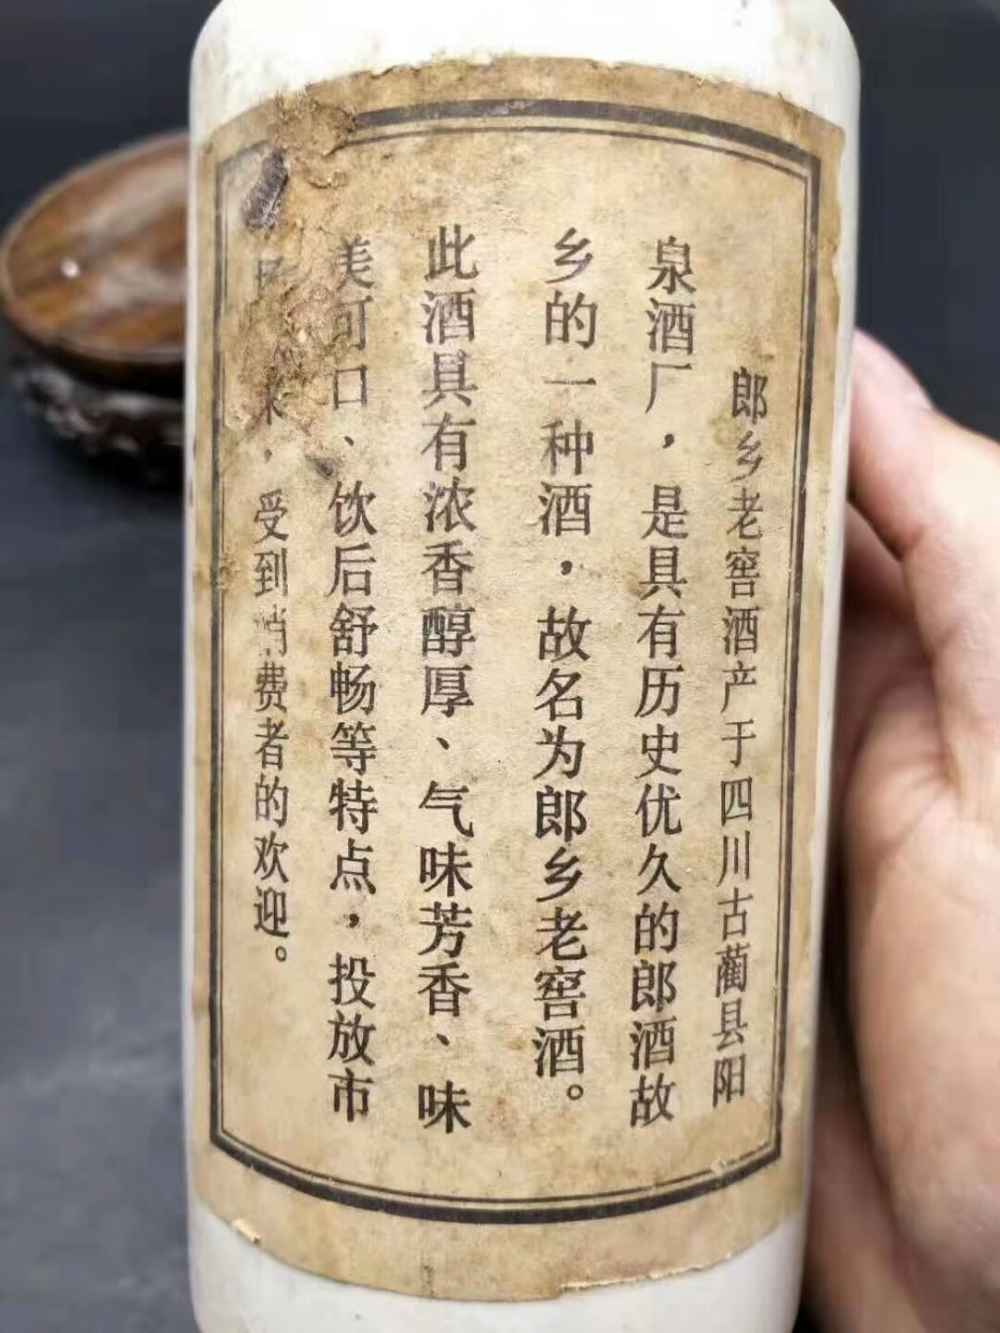 郎乡老窖酒产于四川古蔺县阳
泉酒厂，是具有历史优久的郎酒故
乡的一种酒，故名为郎乡老窖酒。
此酒具有浓香醇厚、气味芳香、味
美可口、饮后舒畅等特点，投放市
来，受到消费者的欢迎。